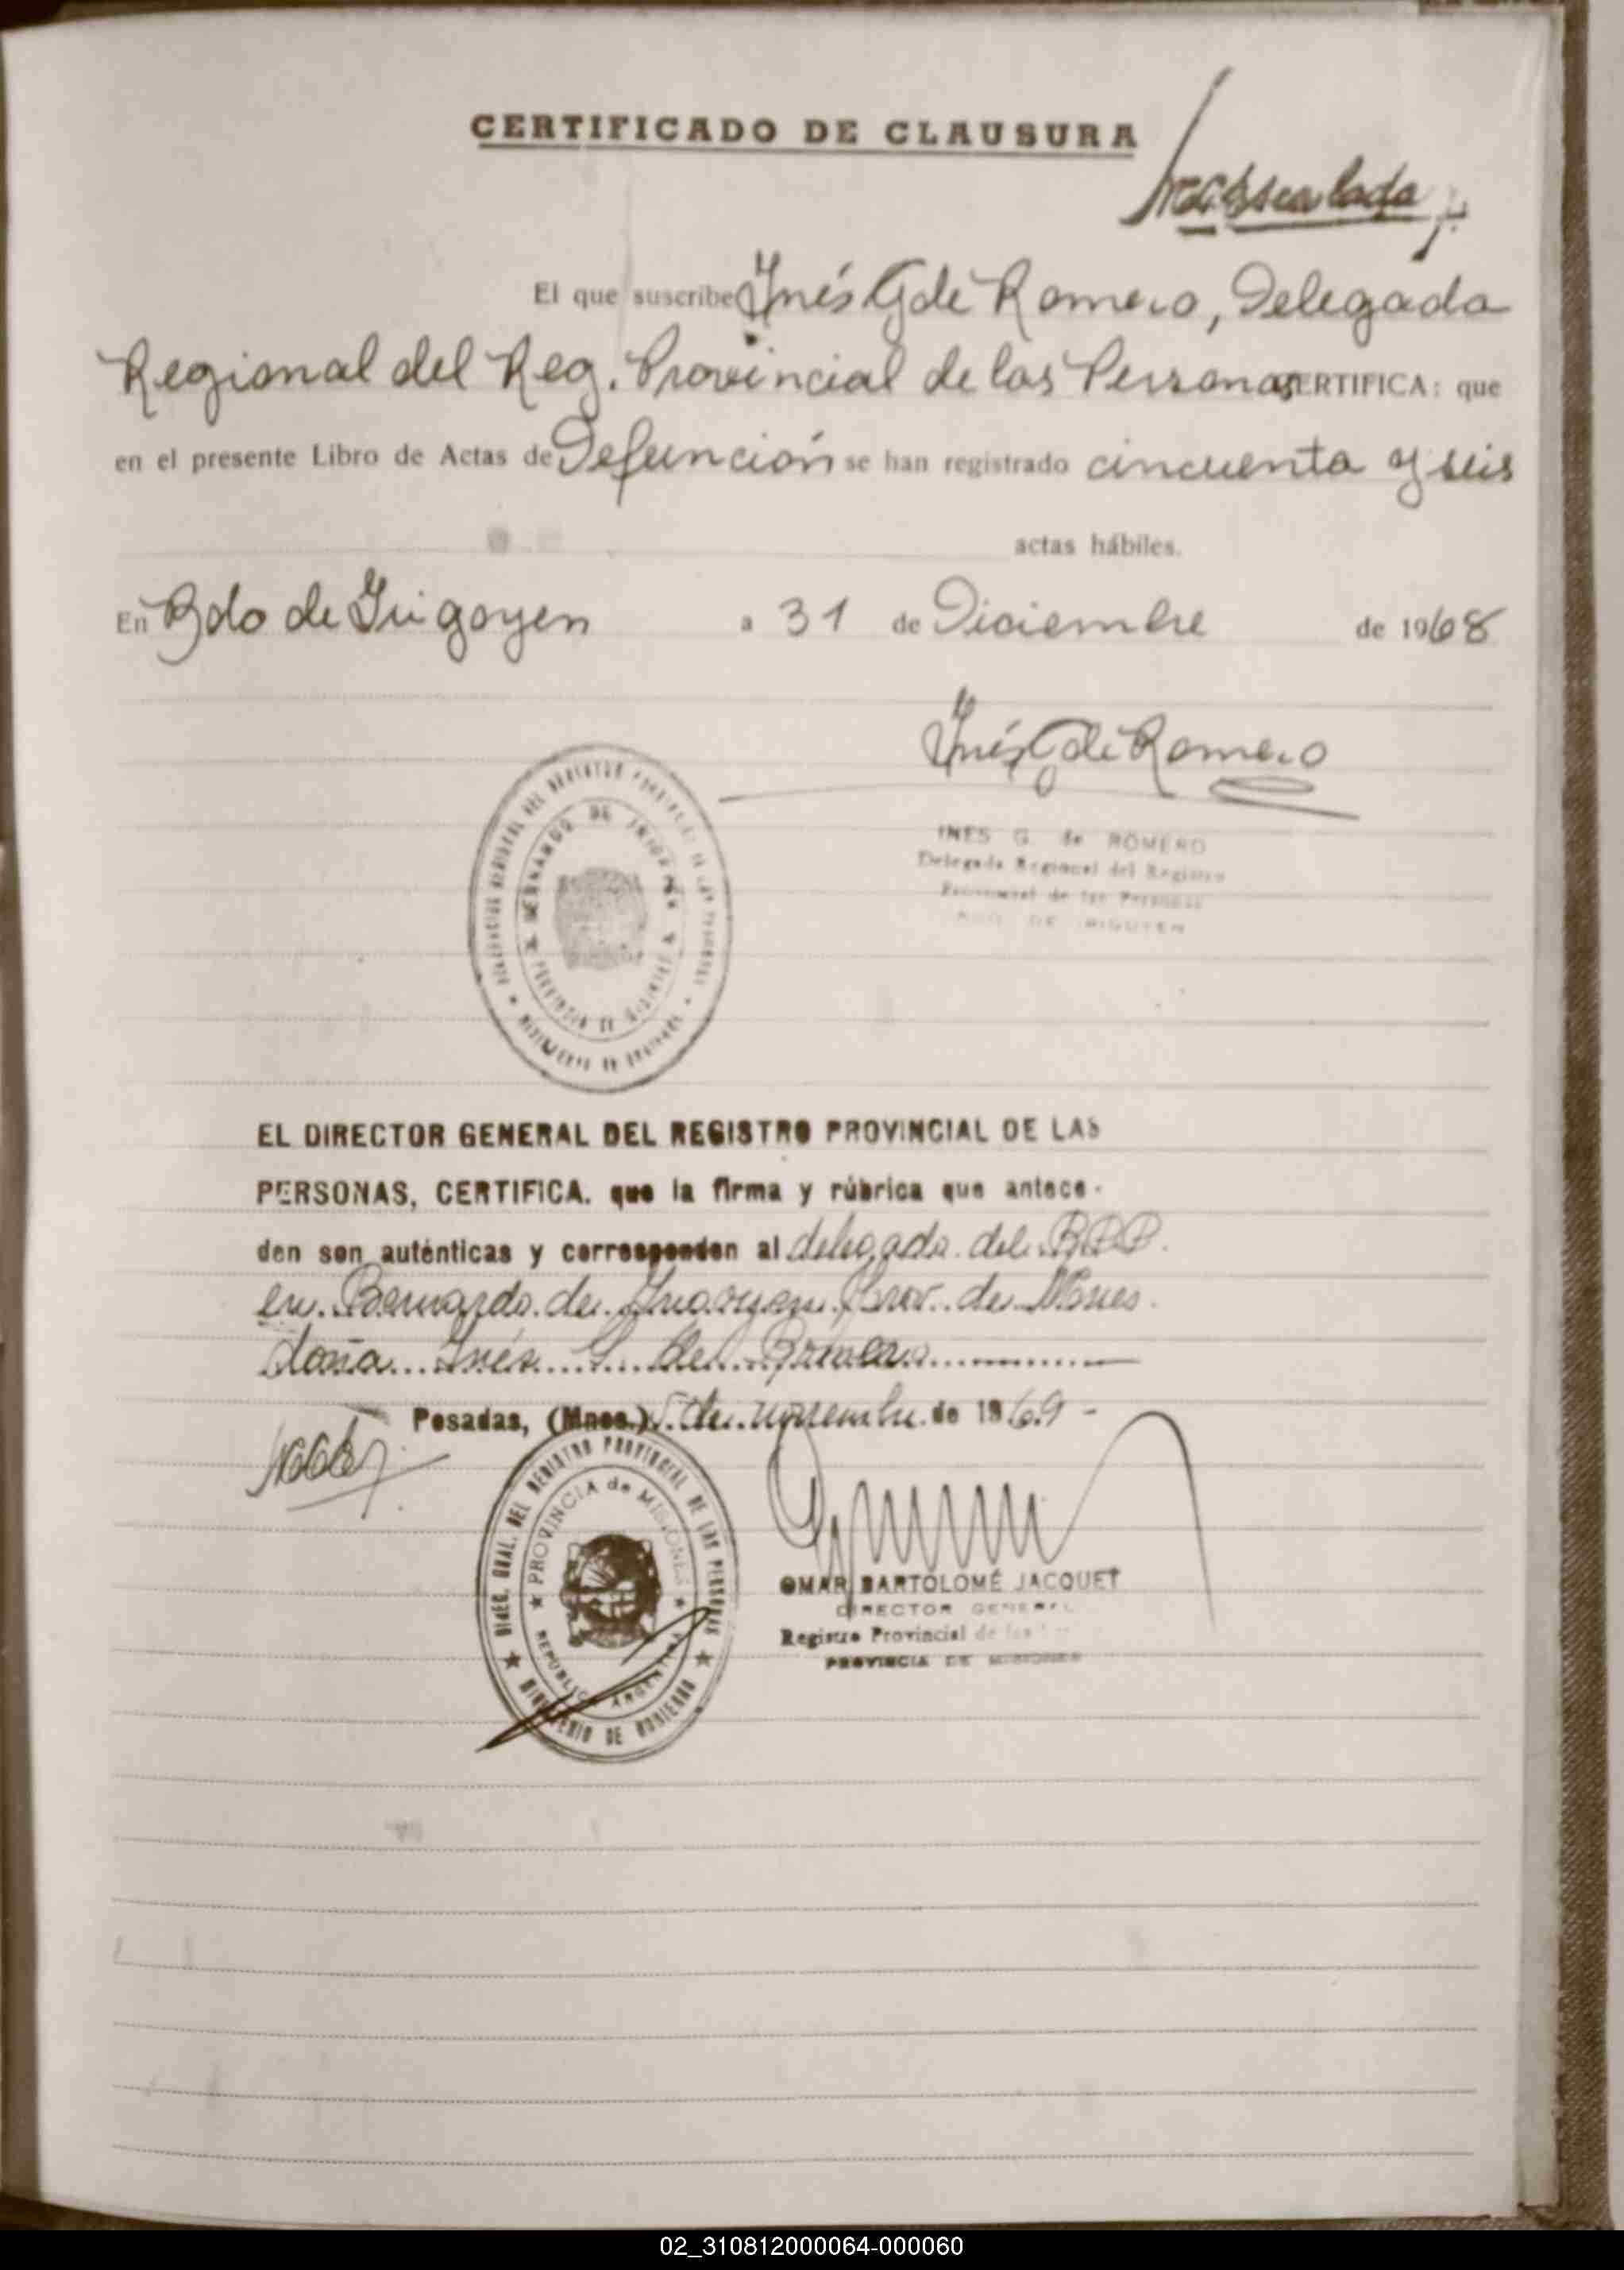 CERTIFICADO DE CLAUSURA
El que suscribe Inés G de Romero, Delegada
Regional del Reg. Provincial de las Personas CERTIFICA: que
en el presente Libro de Actas de Defunción se han registrado cincuenta y seis
actas hábiles.
En Bdo de Irigoyen a 31 de Diciembre de 1968
Inés G de Romero
INES G. de ROMERO
Delegada Regional del Registro
Provincial de las Personas
BDO DE IRIGOYEN
BERNARDO DE IRIGOYEN
PROVINCIA DE MISIONES
EL DIRECTOR GENERAL DEL REGISTRO PROVINCIAL DE LAS
PERSONAS, CERTIFICA. que la firma y rúbrica que antece-
den son auténticas y corresponden al delegada del R.P.P.
en Bernardo de Irigoyen Prov. de Mnes
doña Inés G. de Romero
Posadas, (Mnes.) 5 de noviembre de 1969 -
DIREC. GRAL. DEL REGISTRO PROVINCIAL DE LAS PERSONAS
PROVINCIA de MISIONES
REPUBLICA ARGENTINA
MINISTERIO DE GOBIERNO
OMAR BARTOLOMÉ JACQUET
DIRECTOR GENERAL
Registro Provincial de las
PROVINCIA DE MISIONES
02_310812000064-000060